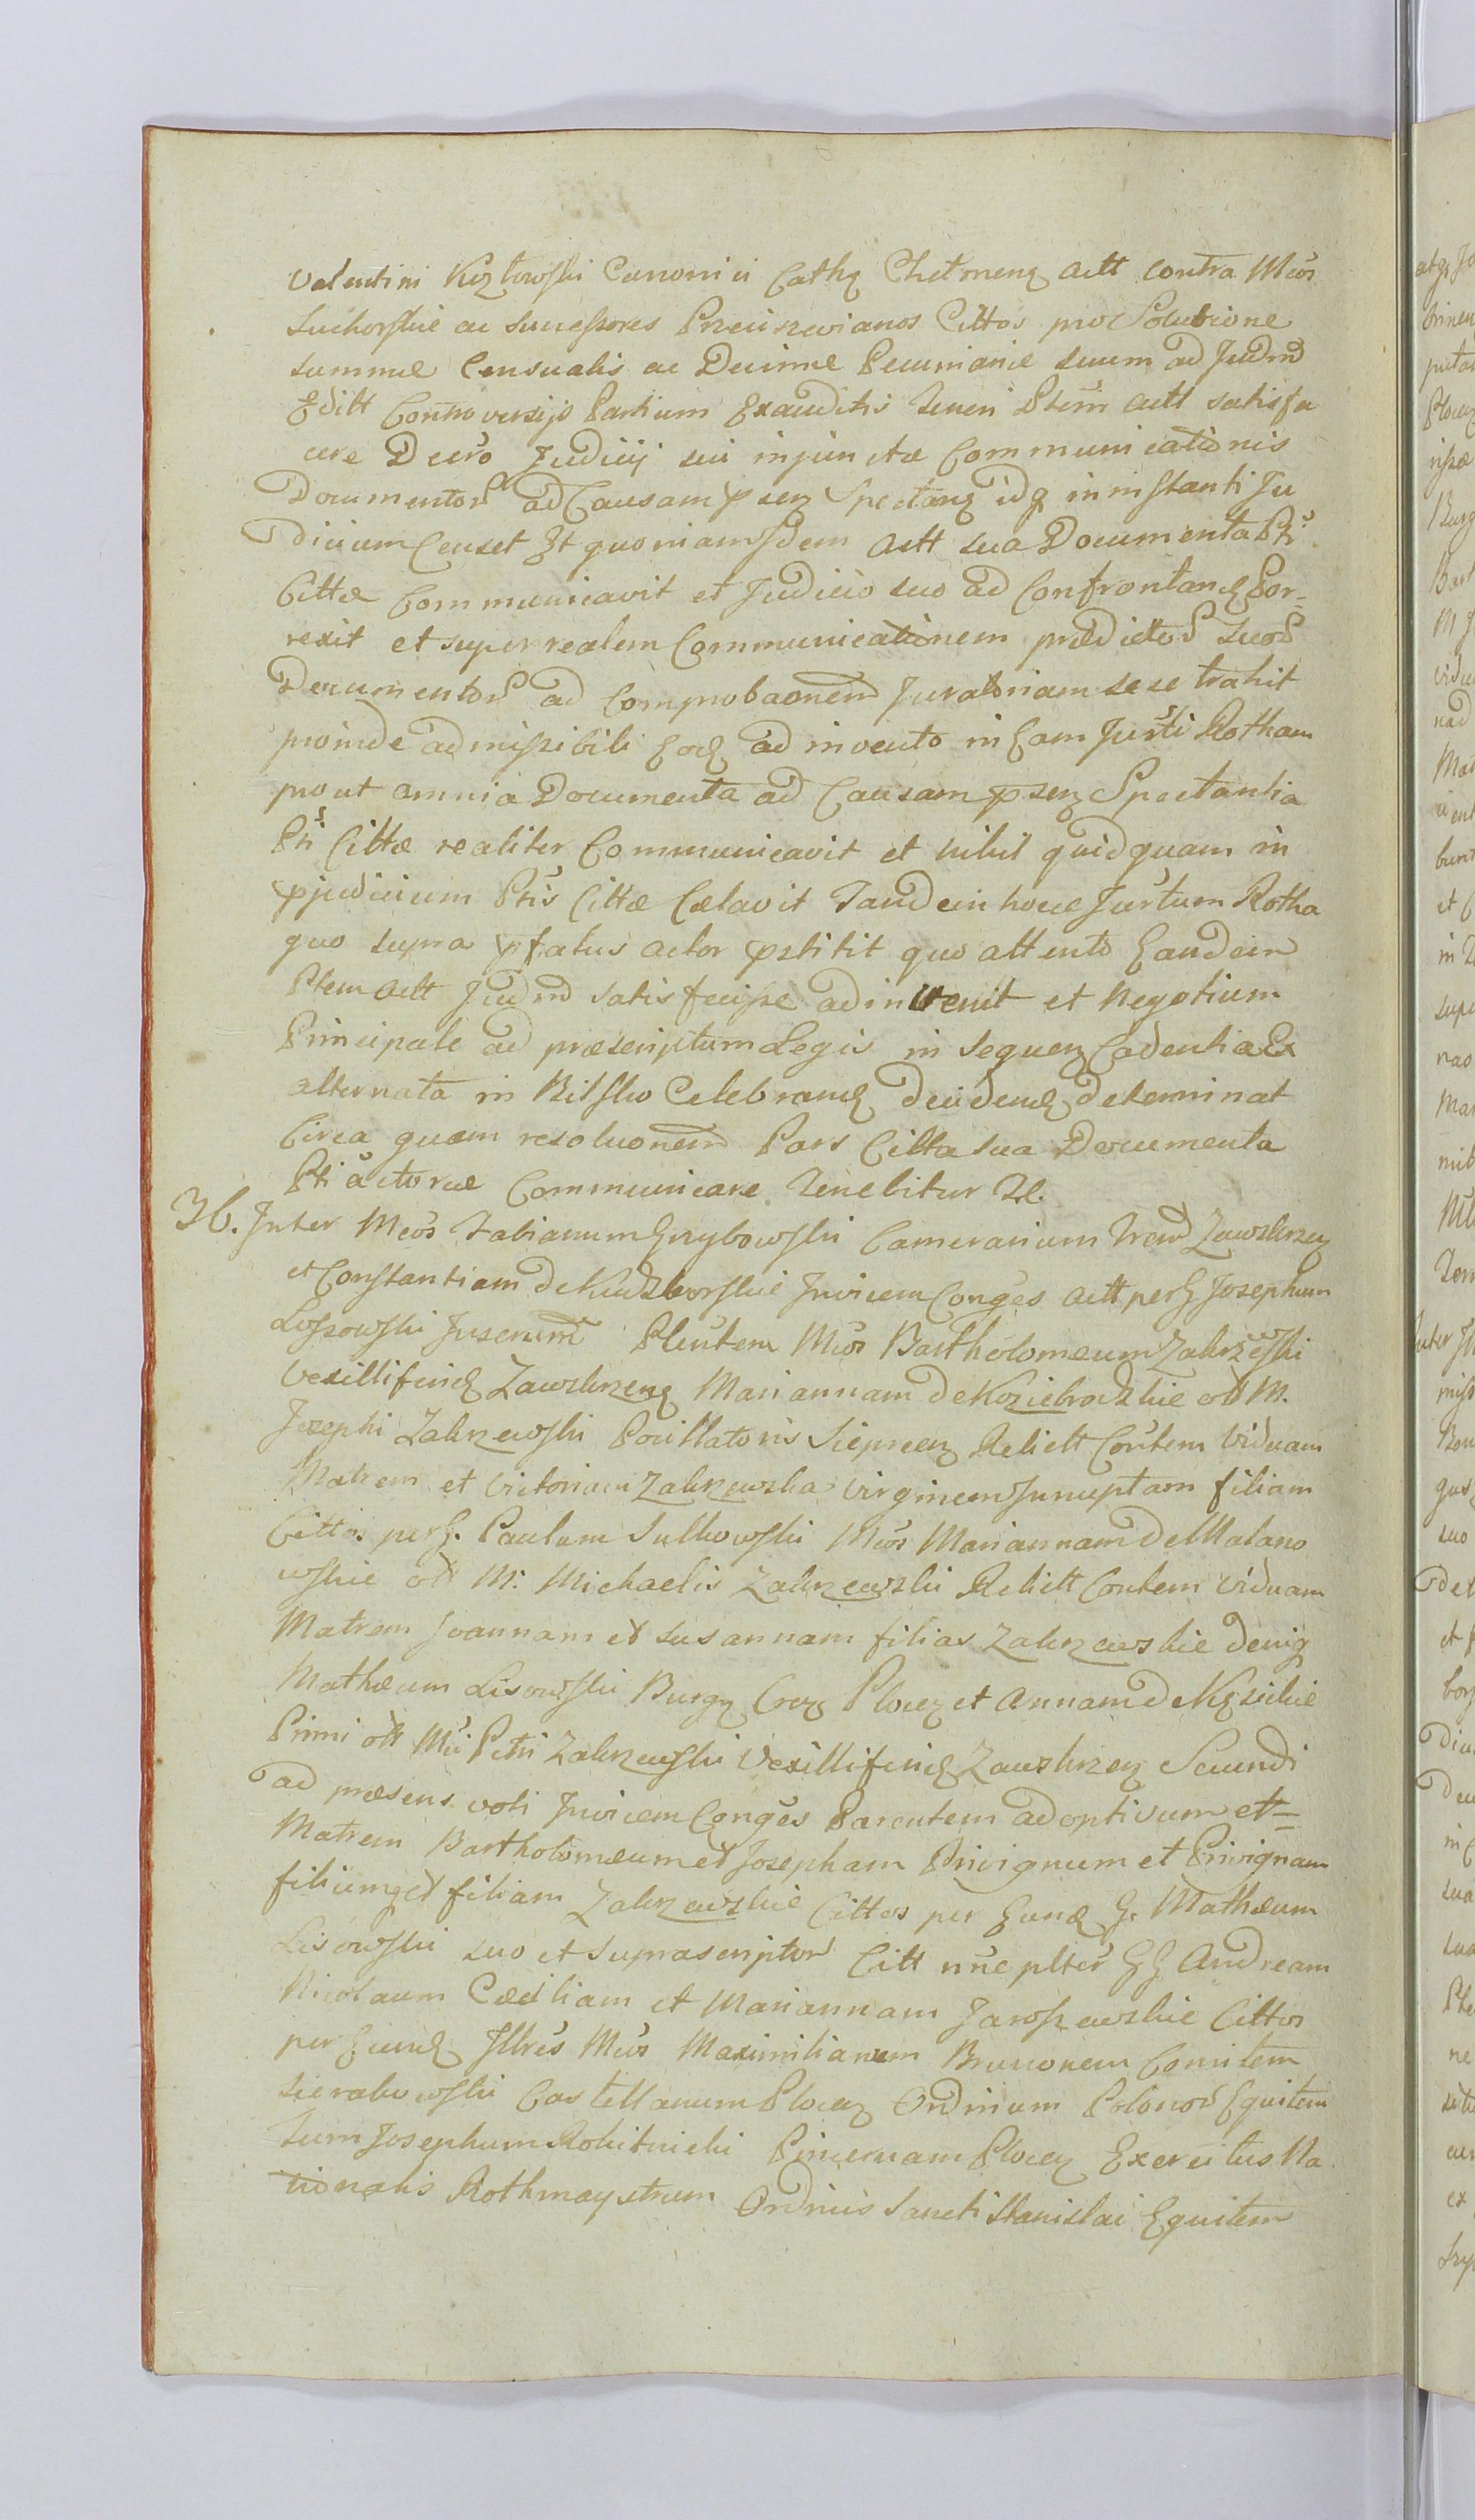 Valentini Kozłowski Canonici Cathq Chelmenq Actt contra Mcos
Suchorskie ac Successores Przeciszevianos Cittos pro Solutione
summæ Censualis ac Decimæ Pecuniariæ suum ad Judm
Editt Controversijs Partium Exauditis Teneri Ptem Actt satisfa
cere Decro Judicij sui injunctæ Communicationis
Documentor ad Causam psen Spectanq idq in instanti Ju
dicium Censet Et quoniam Idem Actt sua Documenta Pti
Cittæ Communicavit et Judicio suo ad Confrontand Por-
rexit et super realem Communicationem prædictor suor
Documentor ad Comprobaonem Juratoriam sese trahit
proinde admissibili Eod ad invento in Eam Jurti Rotham
prout omnia Documenta ad Causam psen Spectantia
Pti Cittæ realiter Communicavit et nihil quidquam in
pjudicium Ptis Cittæ Cælavit Tandem hocce Jurtum Rotha
quo supra pfatus Actor pstitit quo attento Eandem
Ptem Actt Judm satisfecisse adinvenit et Negotium
Principale ad præscriptum Legis in sequen Cadentia Ex
alternata in Bilsko Celebrand decidend determinat
Circa quam resoluonem Pars Citta sua Documenta
Pti actoreæ Communicare Tenebitur
36. Inter Mcos Fabianum Grzybowski Camerarium Zawskrzen
et Constantiam de Kuczborskie Invicem Conges Actt per G Josephum
Lossowski Juserum Pleutem Mcos Bartholomæum Zakrzewski
Vexilliferid Zawskrzenq Mariannam de Koziebrodzkie olt M.
Josephi Zakrzewski Pocillatoris Sieprcen Relictt Contem Viduam
Matrem et Victoriam Zakrzewska Virginem Innuptam filiam
Cittos per G. Paulum Sulkowski Mcos Mariannam de Malano
wskie olt M. Michaelis Zakrzewski Relictt Contem Viduam
Matrem Joannam et Susannam filias Zakrzewskie deniq
Mathæum Lisowski Burgq Crem Plocen et Annam de Kęsickie
Primi olt Mci Petri Zakrzewski Vexilliferid Zawskrzen Secundi
ad præsens voti Invicem Conges Parentem adoptivum et=
Matrem Bartholomæum et Josepham Privignum et Privignam
filiumq et filiam Zakrzewskie Cittos per Eund G. Mathæum
Lisowski suo et suprascriptor Citt nne plter GG Andream
Nicolaum Cæciliam et Mariannam Jaroszewskie Cittos
per Eund Illres Mcos Maximilianum Brunonem Comitem
Sierakowski Castellanum Plocen Ordinum Polonor Equitem
Tum Josephum Rokitnicki Pincernam Plocen Exercitus Na
tionalis Rothmaystrum Ordinis Sancti Stanislai Equitem